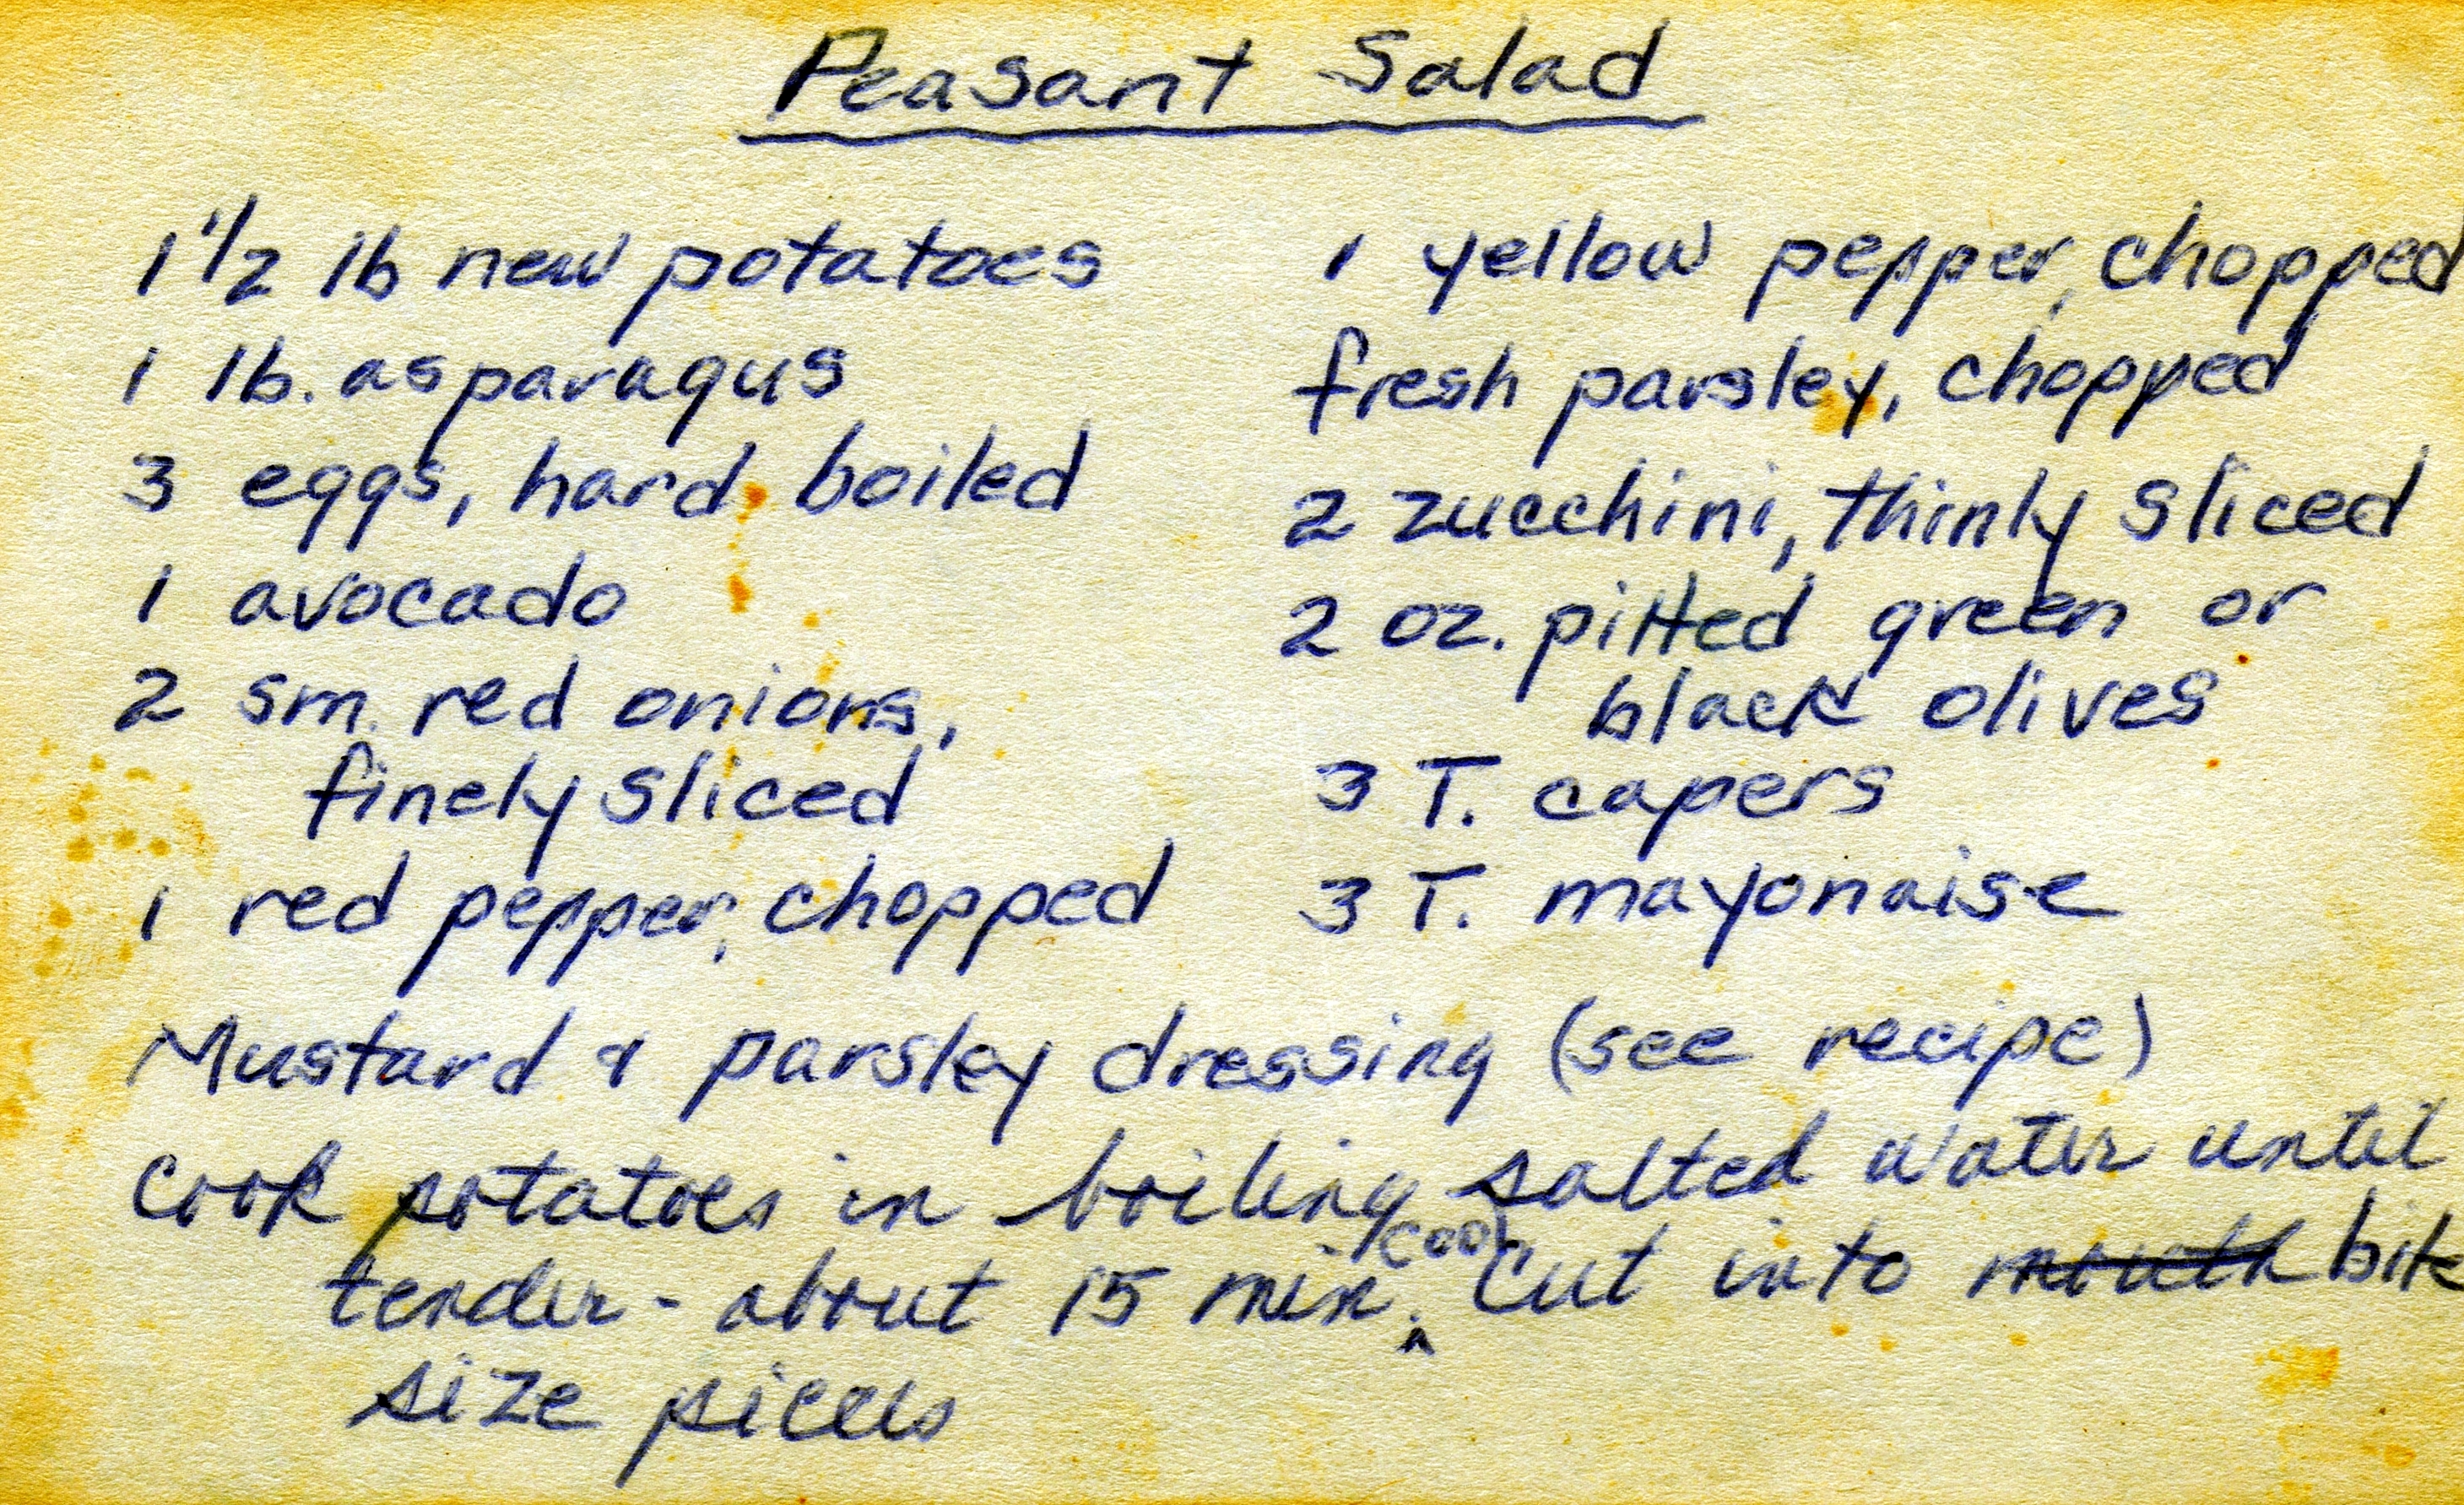 Peasant Salad
1 1/2 lb new potatoes
1 lb. asparagus
3 eggs, hard boiled
1 avocado
2 sm. red onions,
finely sliced
1 red pepper, chopped
1 yellow pepper, chopped
fresh parsley, chopped
2 zucchini, thinly sliced
2 oz. pitted green or
black olives
3 T. capers
3 T. mayonaise
Mustard & parsley dressing (see recipe)
Cook potatoes in boiling salted water until
tender - about 15 min. cool Cut into mouth bite
size pieces